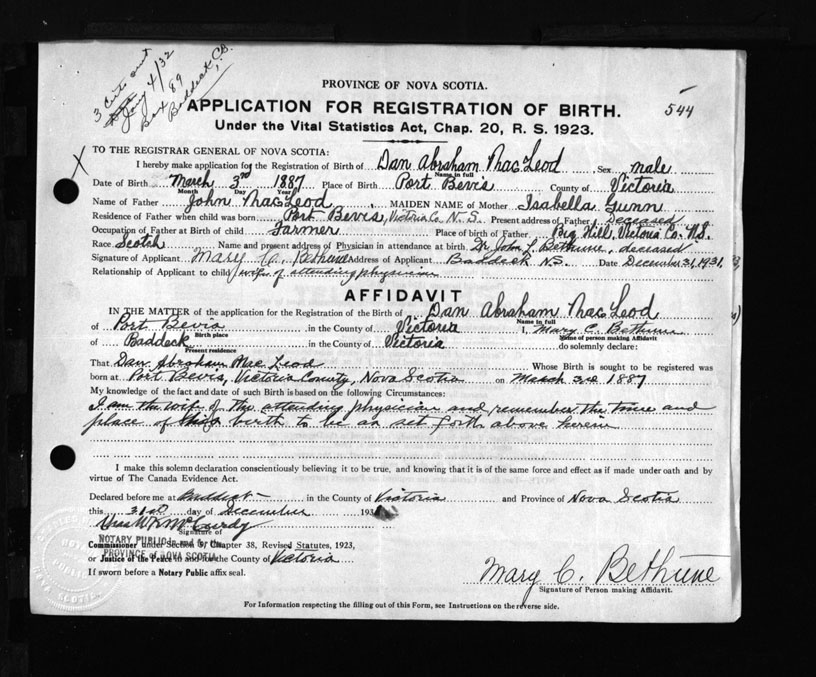 3 Certs sent
Jany 4/32
Box 89
Baddeck, C.B.
544
PROVINCE OF NOVA SCOTIA.
APPLICATION FOR REGISTRATION OF BIRTH.
Under the Vital Statistics Act, Chap. 20, R. S. 1923.
X
TO THE REGISTRAR GENERAL OF NOVA SCOTIA:
I hereby make application for the Registration of Birth of Dan Abraham MacLeod Sex male
Name in full
Date of Birth March 3rd 1887 Place of Birth Port Bevis County of Victoria
Month Day Year
Name of Father John MacLeod MAIDEN NAME of Mother Isabella Gunn
Residence of Father when child was born Port Bevis, Victoria Co. N.S. Present address of Father Deceased
Occupation of Father at Birth of child Farmer Place of birth of Father Big Hill, Victoria Co. N.S.
Race Scotch Name and present address of Physician in attendance at birth Dr. John L. Bethune, deceased
Signature of Applicant Mary C. Bethune Address of Applicant Baddeck N.S. Date December 31, 1931
Relationship of Applicant to child wife of attending physician
AFFIDAVIT
IN THE MATTER of the application for Registration of the Birth of Dan Abraham MacLeod
Name in full
of Port Bevis in the County of Victoria I, Mary C. Bethune
Birth place Name of person making Affidavit
of Baddeck in the County of Victoria do solemnly declare:
Present residence
That Dan Abraham MacLeod Whose Birth is sought to be registered was
born at Port Bevis, Victoria County, Nova Scotia on March 3rd 1887
My knowledge of the fact and date of such Birth is based on the following Circumstances:
I am the wife of the attending physician and remember the time and
place of birth to be as set forth above herein
I make this solemn declaration conscientiously believing it to be true, and knowing that it is of the same force and effect as if made under oath and by
virtue of The Canada Evidence Act.
Declared before me at Baddeck in the County of Victoria and Province of Nova Scotia
this 31st day of December 193
Chas W K McCurdy
Signature of
NOTARY PUBLIC in and for the
Commissioner under Section 3, Chapter 38, Revised Statutes, 1923,
PROVINCE OF NOVA SCOTIA
or Justice of the Peace in and for the County of Victoria
If sworn before a Notary Public affix seal.
Mary C. Bethune
Signature of Person making Affidavit.
For Information respecting the filling out of this Form, see Instructions on the reverse side.